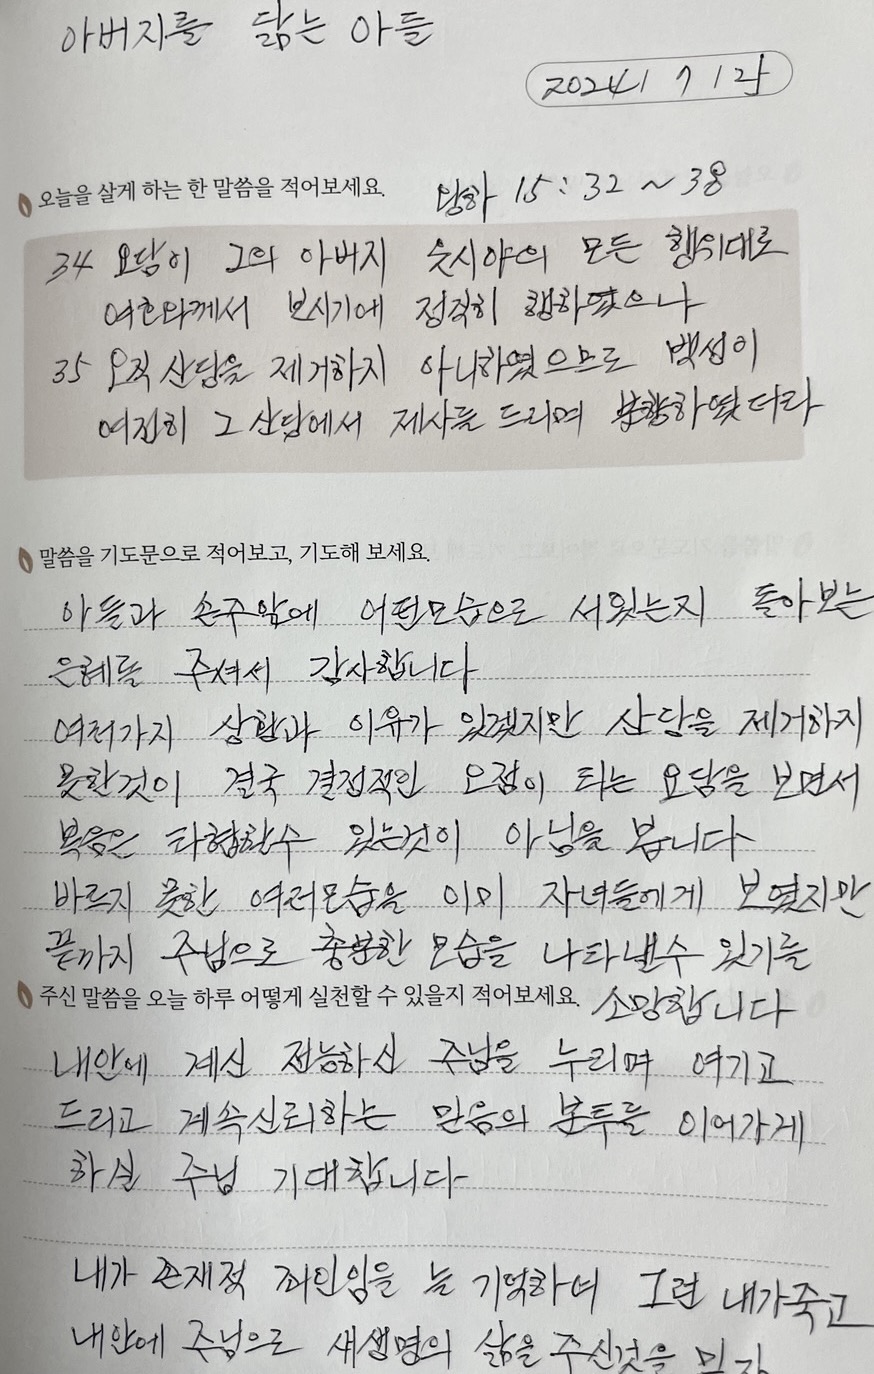 아버지를 닮는 아들
2024 7 12
오늘을 살게 하는 한 말씀을 적어보세요. 왕하 15 : 32 ~ 38
34 요담이 그의 아버지 웃시야의 모든 행위대로
여호와께서 보시기에 정직히 행하였으나
35 오직 산당을 제거하지 아니하였으므로 백성이
여전히 그 산당에서 제사를 드리며 분향하였더라
말씀을 기도문으로 적어보고, 기도해 보세요.
아들과 손주앞에 어떤모습으로 서있는지 돌아보는
은혜를 주셔서 감사합니다
여러가지 상황과 이유가 있겠지만 산당을 제거하지
못한것이 결국 결정적인 오점이 되는 요담을 보면서
복음은 타협할수 있는것이 아님을 봅니다
바르지 못한 여러모습을 이미 자녀들에게 보였지만
끝까지 주님으로 충분한 모습을 나타낼수 있기를
주신 말씀을 오늘 하루 어떻게 실천할 수 있을지 적어보세요. 소망합니다
내안에 계신 전능하신 주님을 누리며 여기고
드리고 계속신뢰하는 믿음의 분투를 이어가게
하실 주님 기대합니다
내가 존재적 죄인임을 늘 기억하며 그런 내가죽고
내안에 주님으로 새생명의 삶을 주신것을